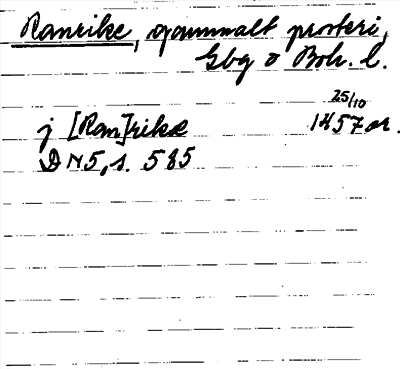 Ranrike, gammalt prosteri,
Gbg o Boh. l.
25/10
j [Ran]rikæ 1457 or.
DN 5, s. 585